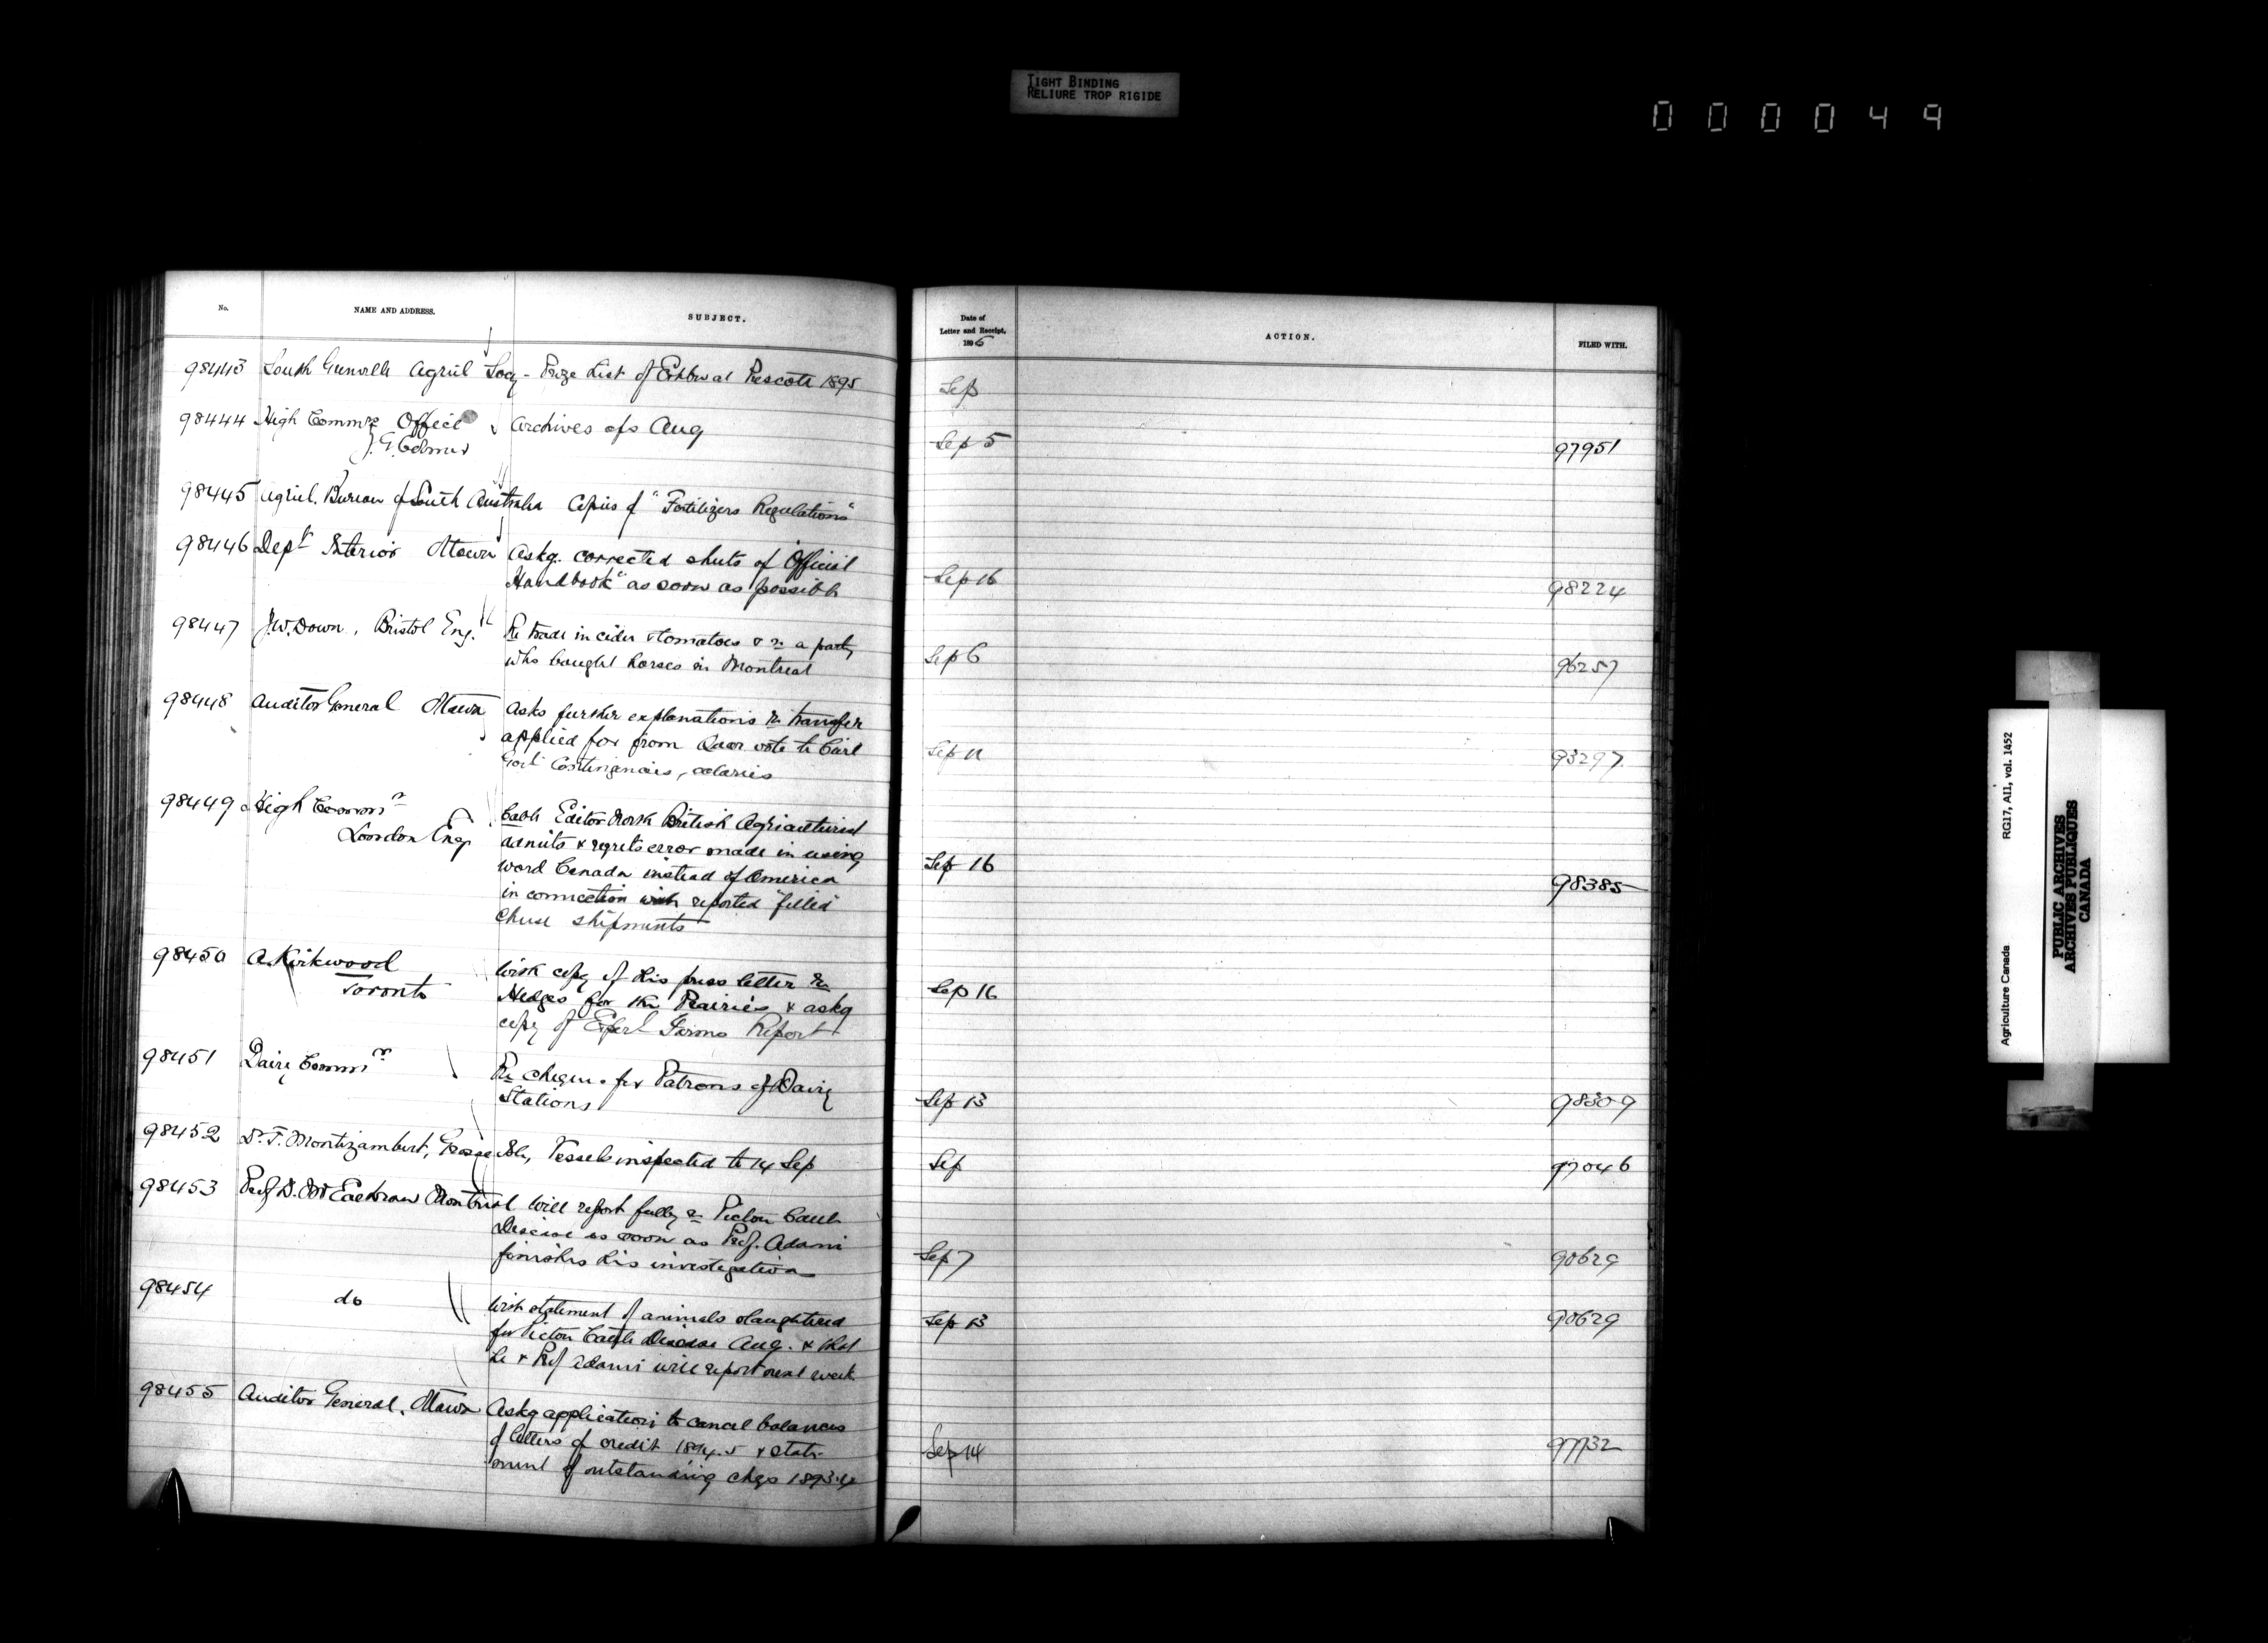 TIGHT BINDING
RELIURE TROP RIGIDE
000049
No. NAME AND ADDRESS. SUBJECT. Date of Letter and Receipt, 1895 ACTION. FILED WITH.
98443 South Grenville Agricul Socy - Prize List of Exhbn at Prescott 1895 Sep
98444 High Commrs Office Archives a/s Aug Sep 5 97951
J.G. Colmer
98445 Agricl. Bureau of South Australia Copies of "Fertilizers Regulations"
98446 Dept Interior Ottawa Askg. corrected sheets of "Official
Handbook" as soon as possible Sep 16 98224
98447 J.W. Down, Bristol Eng. Re trade in cider & tomatoes & re a party
who bought horses in Montreal Sep 6 96257
98448 Auditor General Ottawa Asks further explanations re transfer
applied for from Quar vote to Civil
Govt Contingencies, salaries Sep 11 93297
98449 High Commr
London Eng Cable Editor North British Agriculturist
admits & regrets error made in using
word Canada instead of America Sep 16
in connection with reported "filled" 98385
cheese shipments
98450 A. Kirkwood
Toronto With copy of his press letter re
Hedges for the Prairies & askg Sep 16
copy of Experl Farms Report
98451 Dairy Commr Re cheques for Patrons of Dairy
Stations Sep 13 98309
98452 Dr. F. Montizambert, Grosse Isle, Vessels inspected to 14 Sep Sep 97046
98453 Prof D. McEachran Montreal Will report fully re Pictou Cattle
Disease as soon as Prof. Adami
finishes his investigation Sep 7 90629
98454 do With statement of animals slaughtered
for Pictou Cattle Disease Aug. & that Sep 13 90629
he & Prof Adami will report next week
98455 Auditor General, Ottawa Askg application to cancel balances
of letters of credit 1894-5 & state-
ment of outstanding chqs 1893-4 Sep 14 97732
Agriculture Canada RG17, AII, vol. 1452
PUBLIC ARCHIVES
ARCHIVES PUBLIQUES
CANADA